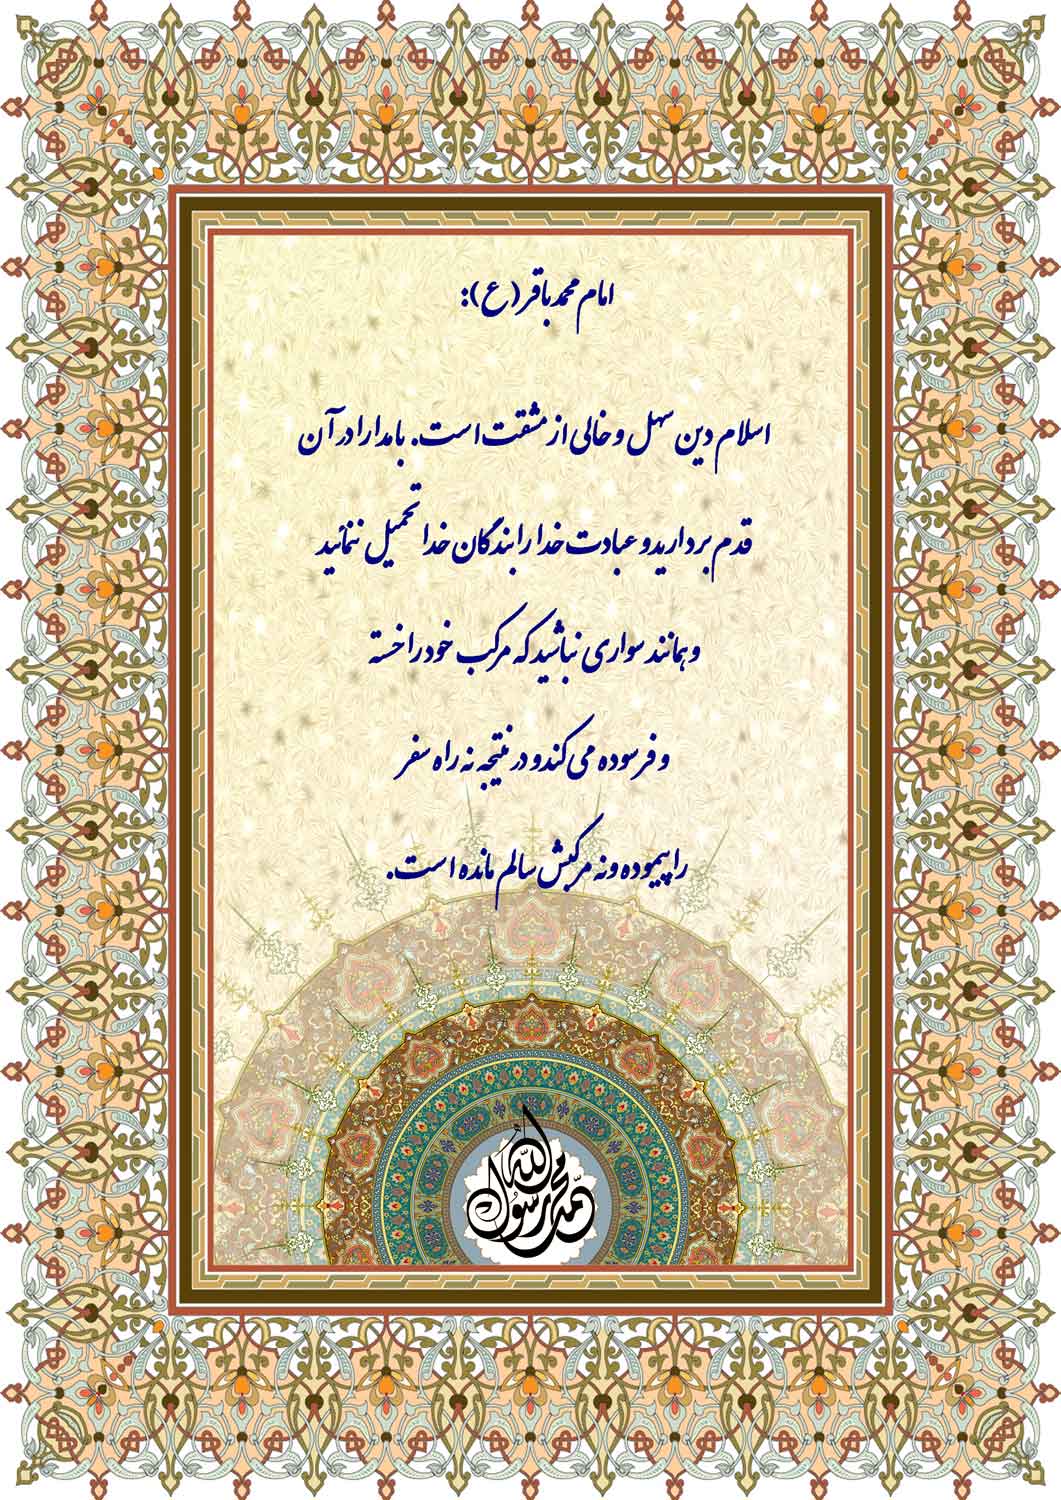 امام محمد باقر (ع):
اسلام دین سهل و خالی از مشقت است. با مدارا در آن
قدم بردارید و عبادت خدا را بندگان خدا تحمیل ننمائید
و همانند سواری نباشید که مرکب خود را خسته
و فرسوده می کند و در نتیجه نه راه سفر
را پیموده و نه مرکبش سالم مانده است.
محمد رسول الله